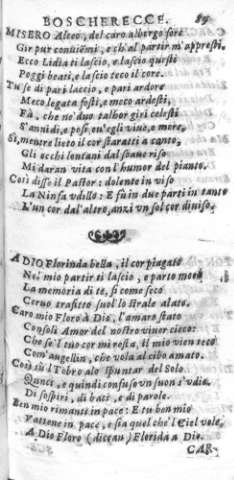 BOSCHERECCE. 89
MISERO Alceo, del caro albergo fore
Gir pur conuiemi, e ch'al partir m'appresti.
Ecco Lidia ti lascio, e lascio questi
Poggi beati, e lascio teco il core.
Tu se di pari laccio, e pari ardore
Meco legata fosti, e meco ardesti,
Fà, che ne' duo talhor giri celesti
S'annidi, e posi, ou'egli viue, e more.
Sì, mentre lieto il cor staratti a canto,
Gli occhi lontani dal soaue riso
Mi daran vita con l'humor del pianto.
Così disse il Pastor: dolente in viso
La Ninfa vdillo: E fù in due parti in tanto
L'un cor dal'altro, anzi vn sol cor diuiso.
A DIO Florinda bella, il cor piagato
Nel mio partir ti lascio, e porto meco
La memoria di te, sì come seco
Ceruo trafitto suol lo strale alato.
Caro mio Floro à Dio, l'amaro stato
Consoli Amor del nostro viuer cieco:
Che se'l tuo cor mi resta, il mio vien teco
Com'augellin, che vola al cibo amato.
Così sù'l Tebro alo spuntar del Sole
Quinci, e quindi confuso vn suon s'vdia,
Di sospiri, di baci, e di parole.
Ben mio rimanti in pace: E tu ben mio
Vattene in pace, e sia quel che'l Ciel vole,
A Dio Floro (dicean) Florida a Dio.
CAR-